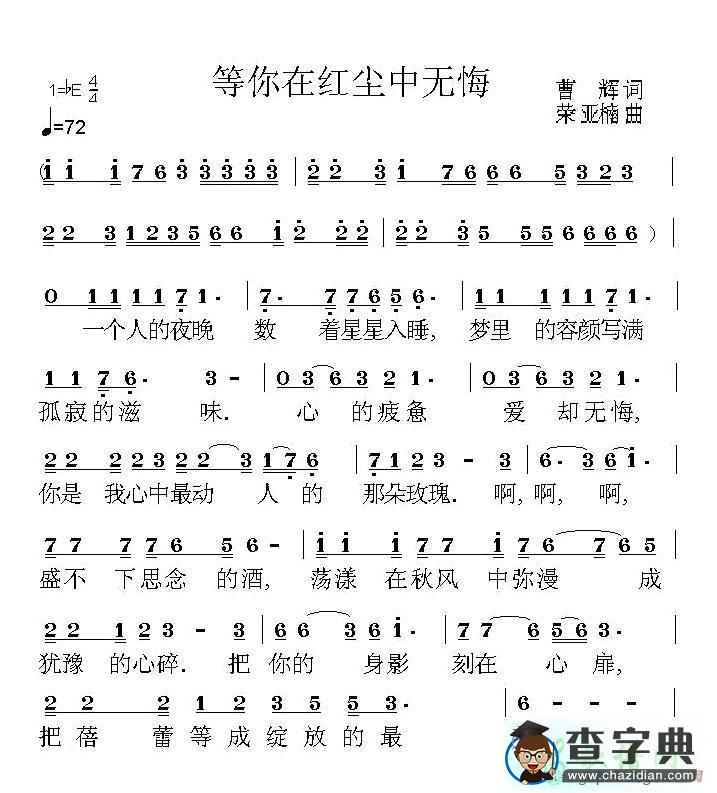 等你在红尘中无悔
1=♭E 4/4
曹 辉 词
♩=72
荣亚楠 曲
(1 1 1 7 6 3 3 3 3 3 | 2 2 3 1 7 6 6 6 5 3 2 3 |
2 2 3 1 2 3 5 6 6 1 2 2 2 | 2 2 2 3 5 5 5 6 6 6 6 ) |
0 1 1 1 1 7 1· | 7· 7 7 6 5 6· | 1 1 1 1 1 7 1 2
一个人的夜晚 数 着星星入睡, 梦里 的容颜写满
1 1 7 6· 3 - | 0 3 6 3 2 1· | 0 3 6 3 2 1· |
孤寂的滋 味. 心 的疲惫 爱 却无悔,
2 2 2 2 3 2 2 3 1 7 6 | 7 1 2 3 - 3 | 6· 3 6 1· |
你是 我心中最动 人 的 那朵玫瑰. 啊, 啊, 啊,
7 7 7 7 6 5 6 - | 1 1 1 7 7 7 6 7 6 |
盛不 下思念 的酒, 荡漾 在秋风 中弥漫 成
2 2 1 2 3 - 3 | 6 6 6 3 6 1· | 7 7 6 5 6 5·
犹豫 的心碎. 把 你的 身影 刻在 心 扉,
2 2 2 1 2 3 5 5 3· | 5 - - - |
把 蓓 蕾 等 成 绽 放 的 最
查字典
www.chazidian.com